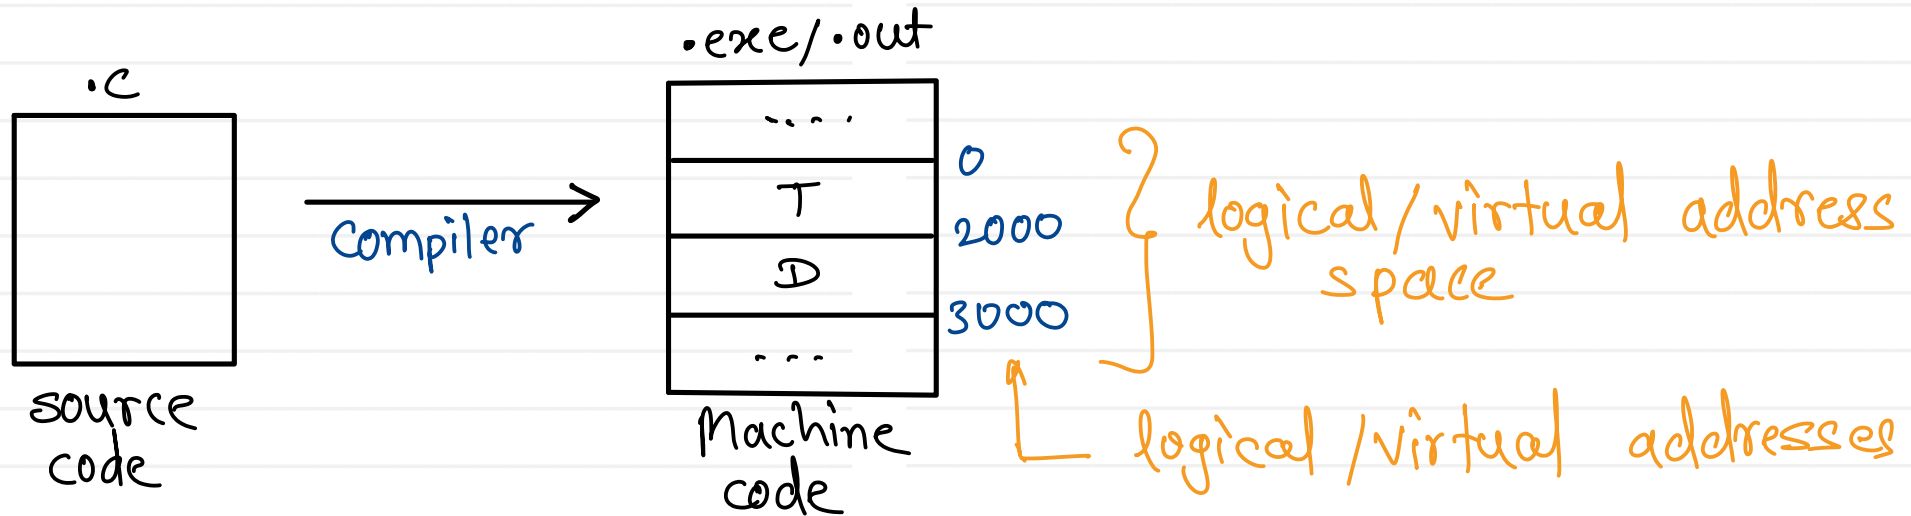 .c
source
code
compiler
.exe/.out
....
T
D
...
Machine
code
0
2000
3000
logical/virtual address
space
logical/virtual addresses